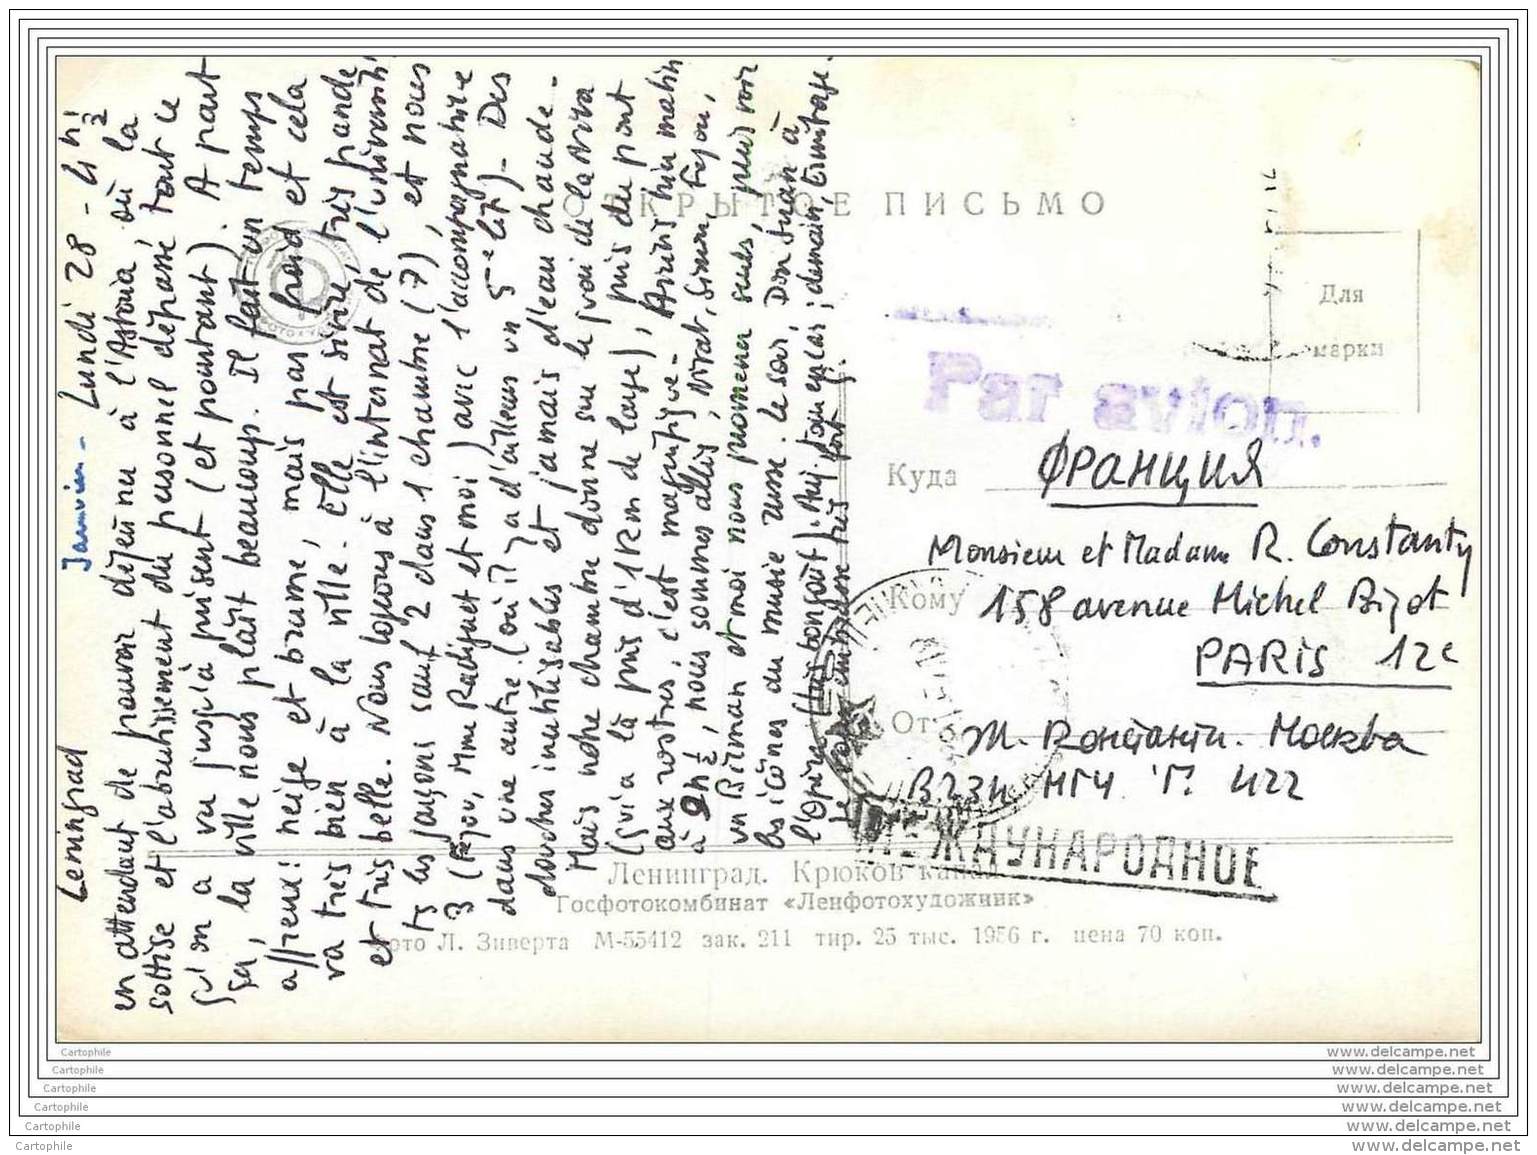 Leningrad Janvier - Lundi 28 - 4 h ½
en attendant de pouvoir déjeuner à l'Astoria, où la
sottise et l'abrutissement du personnel dépasse tout ce
qu'on a vu jusqu'à présent (et pourtant). A part
ça, la ville nous plaît beaucoup. Il fait un temps
affreux: neige et brume, mais pas froid et cela
va très bien à la ville. Elle est sévère, très grande
et très belle. Nous logeons à l'internat de l'université,
ts les garçons sauf 2 dans 1 chambre (7), et nous
3 (Fejou, Mme Radiguet et moi) avec l'accompagnatrice
dans une autre. (où il y a d'ailleurs un 5e lit) - Des
douches inutilisables et jamais d'eau chaude -
Mais notre chambre donne sur le quai de la Neva
(qui a là près d'1 Km de large), près du pont
aux rostres. c'est magnifique - Arrivés hier matin
à 9h ½, nous sommes allés, Nivat, Simon, Fejou,
Birman et moi nous promener seuls, puis voir
les icônes du musée russe. Le soir, Don Juan à
l'Opéra (mauvais goût). Auj. ; demain, Ermitage.
Je vous embrasse très fort
ОТКРЫТОЕ ПИСЬМО
Для
марки
Par avion.
Куда ФРАНЦИЯ
Monsieur et Madame R. Constanty
Кому 158 avenue Michel Bizot
PARIS 12e
От М. Константи. Москва
В234 МГУ Г 422
МЕЖДУНАРОДНОЕ
Ленинград. Крюков канал
Госфотокомбинат «Ленфотохудожник»
Фото Л. Зиверта М-55412 зак. 211 тир. 25 тыс. 1956 г. цена 70 коп.
Cartophile www.delcampe.net
Cartophile www.delcampe.net
Cartophile www.delcampe.net
Cartophile www.delcampe.net
Cartophile www.delcampe.net
Cartophile www.delcampe.net